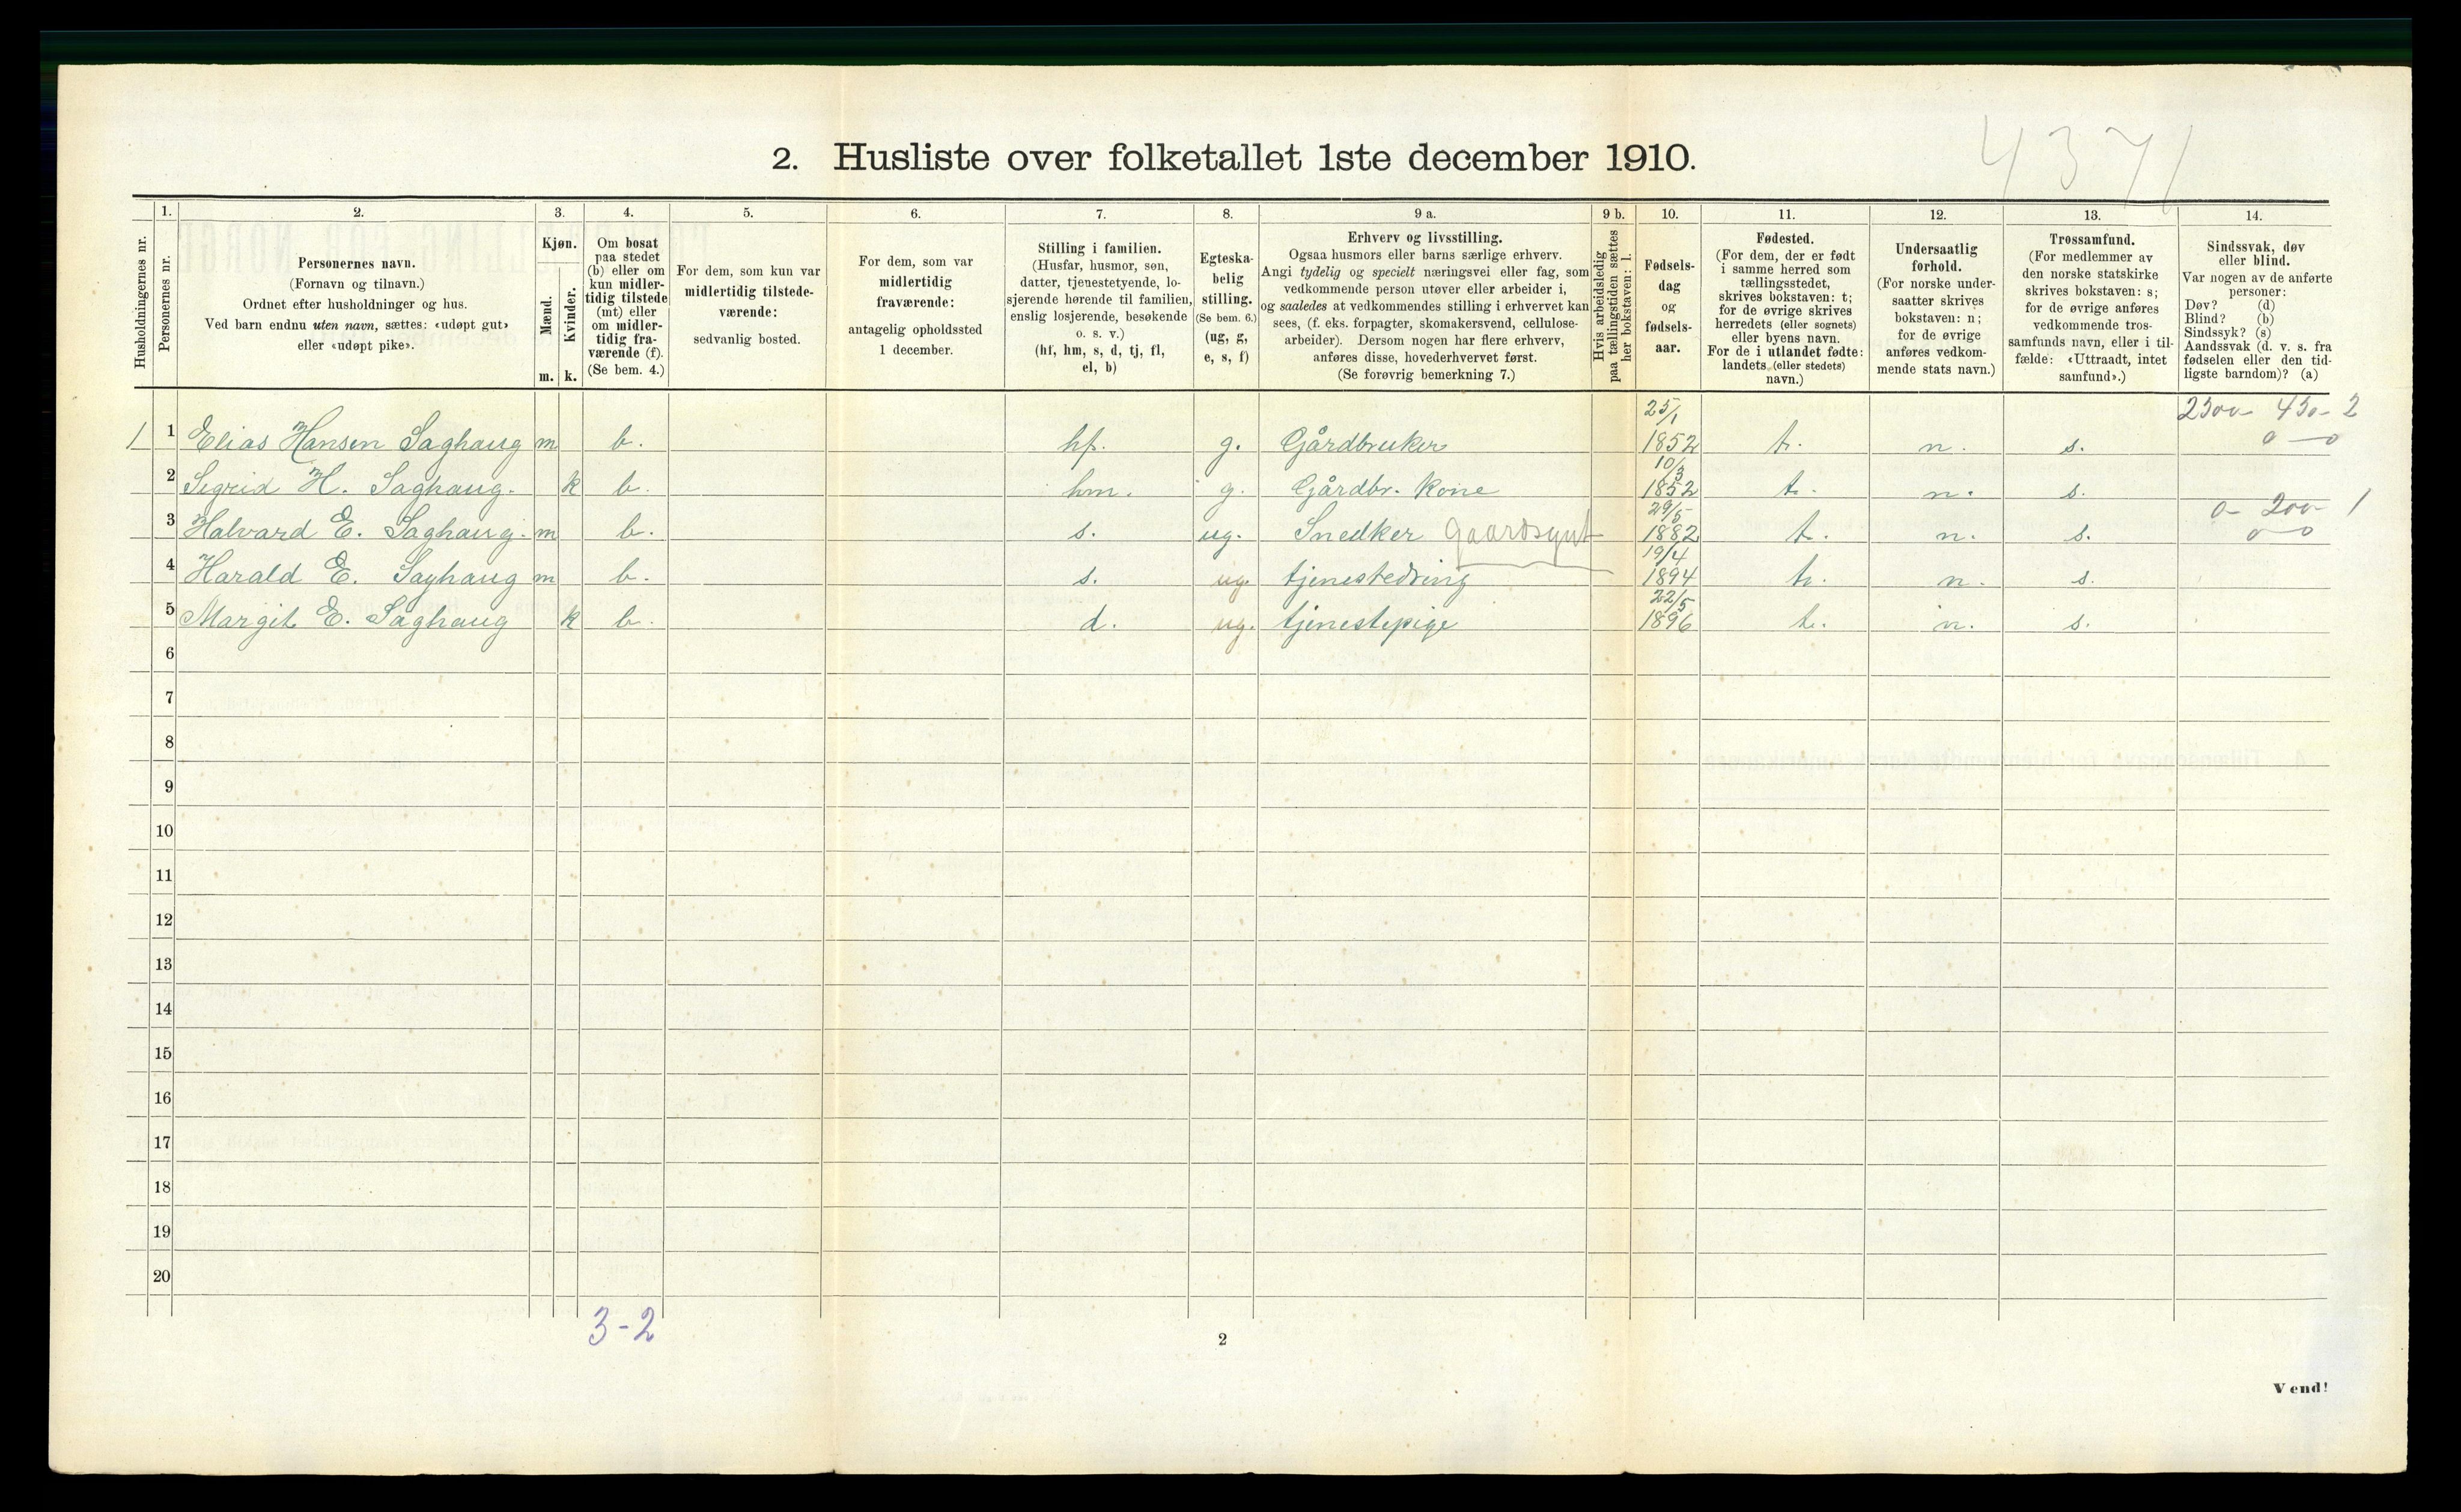 4371
2. Husliste over folketallet 1ste december 1910.
Husholdningernes nr.
1.
Personernes nr.
2.
Personernes navn.
(Fornavn og tilnavn.)
Ordnet efter husholdninger og hus.
Ved barn endnu uten navn, sættes: «udøpt gut»
eller «udøpt pike».
3.
Kjøn.
Mænd.
Kvinder.
m. k.
4.
Om bosat
paa stedet
(b) eller om
kun midler-
tidig tilstede
(mt) eller
om midler-
tidig fra-
værende (f).
(Se bem. 4.)
5.
For dem, som kun var
midlertidig tilstede-
værende:
sedvanlig bosted.
6.
For dem, som var
midlertidig
fraværende:
antagelig opholdssted
1 december.
7.
Stilling i familien.
(Husfar, husmor, søn,
datter, tjenestetyende, lo-
sjerende hørende til familien,
enslig losjerende, besøkende
o. s. v.)
(hf, hm, s, d, tj, fl,
el, b)
8.
Egteska-
belig
stilling.
(Se bem. 6.)
(ug, g,
e, s, f)
9 a.
Erhverv og livsstilling.
Ogsaa husmors eller barns særlige erhverv.
Angi tydelig og specielt næringsvei eller fag, som
vedkommende person utøver eller arbeider i,
og saaledes at vedkommendes stilling i erhvervet kan
sees, (f. eks. forpagter, skomakersvend, cellulose-
arbeider). Dersom nogen har flere erhverv,
anføres disse, hovederhvervet først.
(Se forøvrig bemerkning 7.)
9 b.
Hvis arbeidsledig
paa tællingstiden sættes
her bokstaven: l.
10.
Fødsels-
dag
og
fødsels-
aar.
11.
Fødested.
(For dem, der er født
i samme herred som
tællingsstedet,
skrives bokstaven: t;
for de øvrige skrives
herredets (eller sognets)
eller byens navn.
For de i utlandet fødte:
landets (eller stedets)
navn.)
12.
Undersaatlig
forhold.
(For norske under-
saatter skrives
bokstaven: n;
for de øvrige
anføres vedkom-
mende stats navn.)
13.
Trossamfund.
(For medlemmer av
den norske statskirke
skrives bokstaven: s;
for de øvrige anføres
vedkommende tros-
samfunds navn, eller i til-
fælde: «Uttraadt, intet
samfund».)
14.
Sindssvak, døv
eller blind.
Var nogen av de anførte
personer:
Døv? (d)
Blind? (b)
Sindssyk? (s)
Aandssvak (d. v. s. fra
fødselen eller den tid-
ligste barndom)? (a)
25/1 2500- 450- 2
1 1 Elias Hansen Saghaug m b. hf. g. Gårdbruker 1852 t. n. s. 0 — 0
10/3
2 Sigrid H. Saghaug. k b. hm. g. Gårdbr. kone 1852 t. n. s.
29/5 0- 200- 1
3 Halvard E. Saghaug. m b. s. ug. Snedker 1882 t. n. s. 0 — 0
19/4
4 Harald E. Saghaug m b. s. ug. tjenestedreng 1894 t. n. s.
22/5
5 Margit E. Saghaug k b. d. ug. tjenestepige 1896 t. n. s.
6
7
8
9
10
11
12
13
14
15
16
17
18
19
20
3-2
2
Vend!